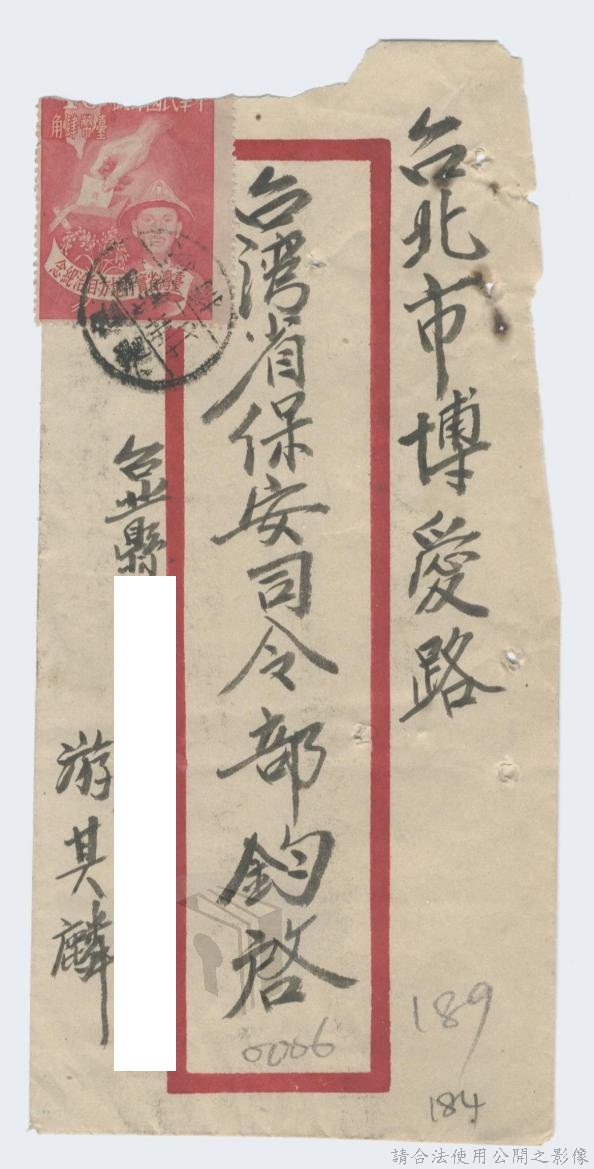 台北市博愛路
台湾省保安司令部鈞啓
台北縣
游其麟
臺幣肆角
臺灣省實施地方自治紀念
0006
189
184
請合法使用公開之影像